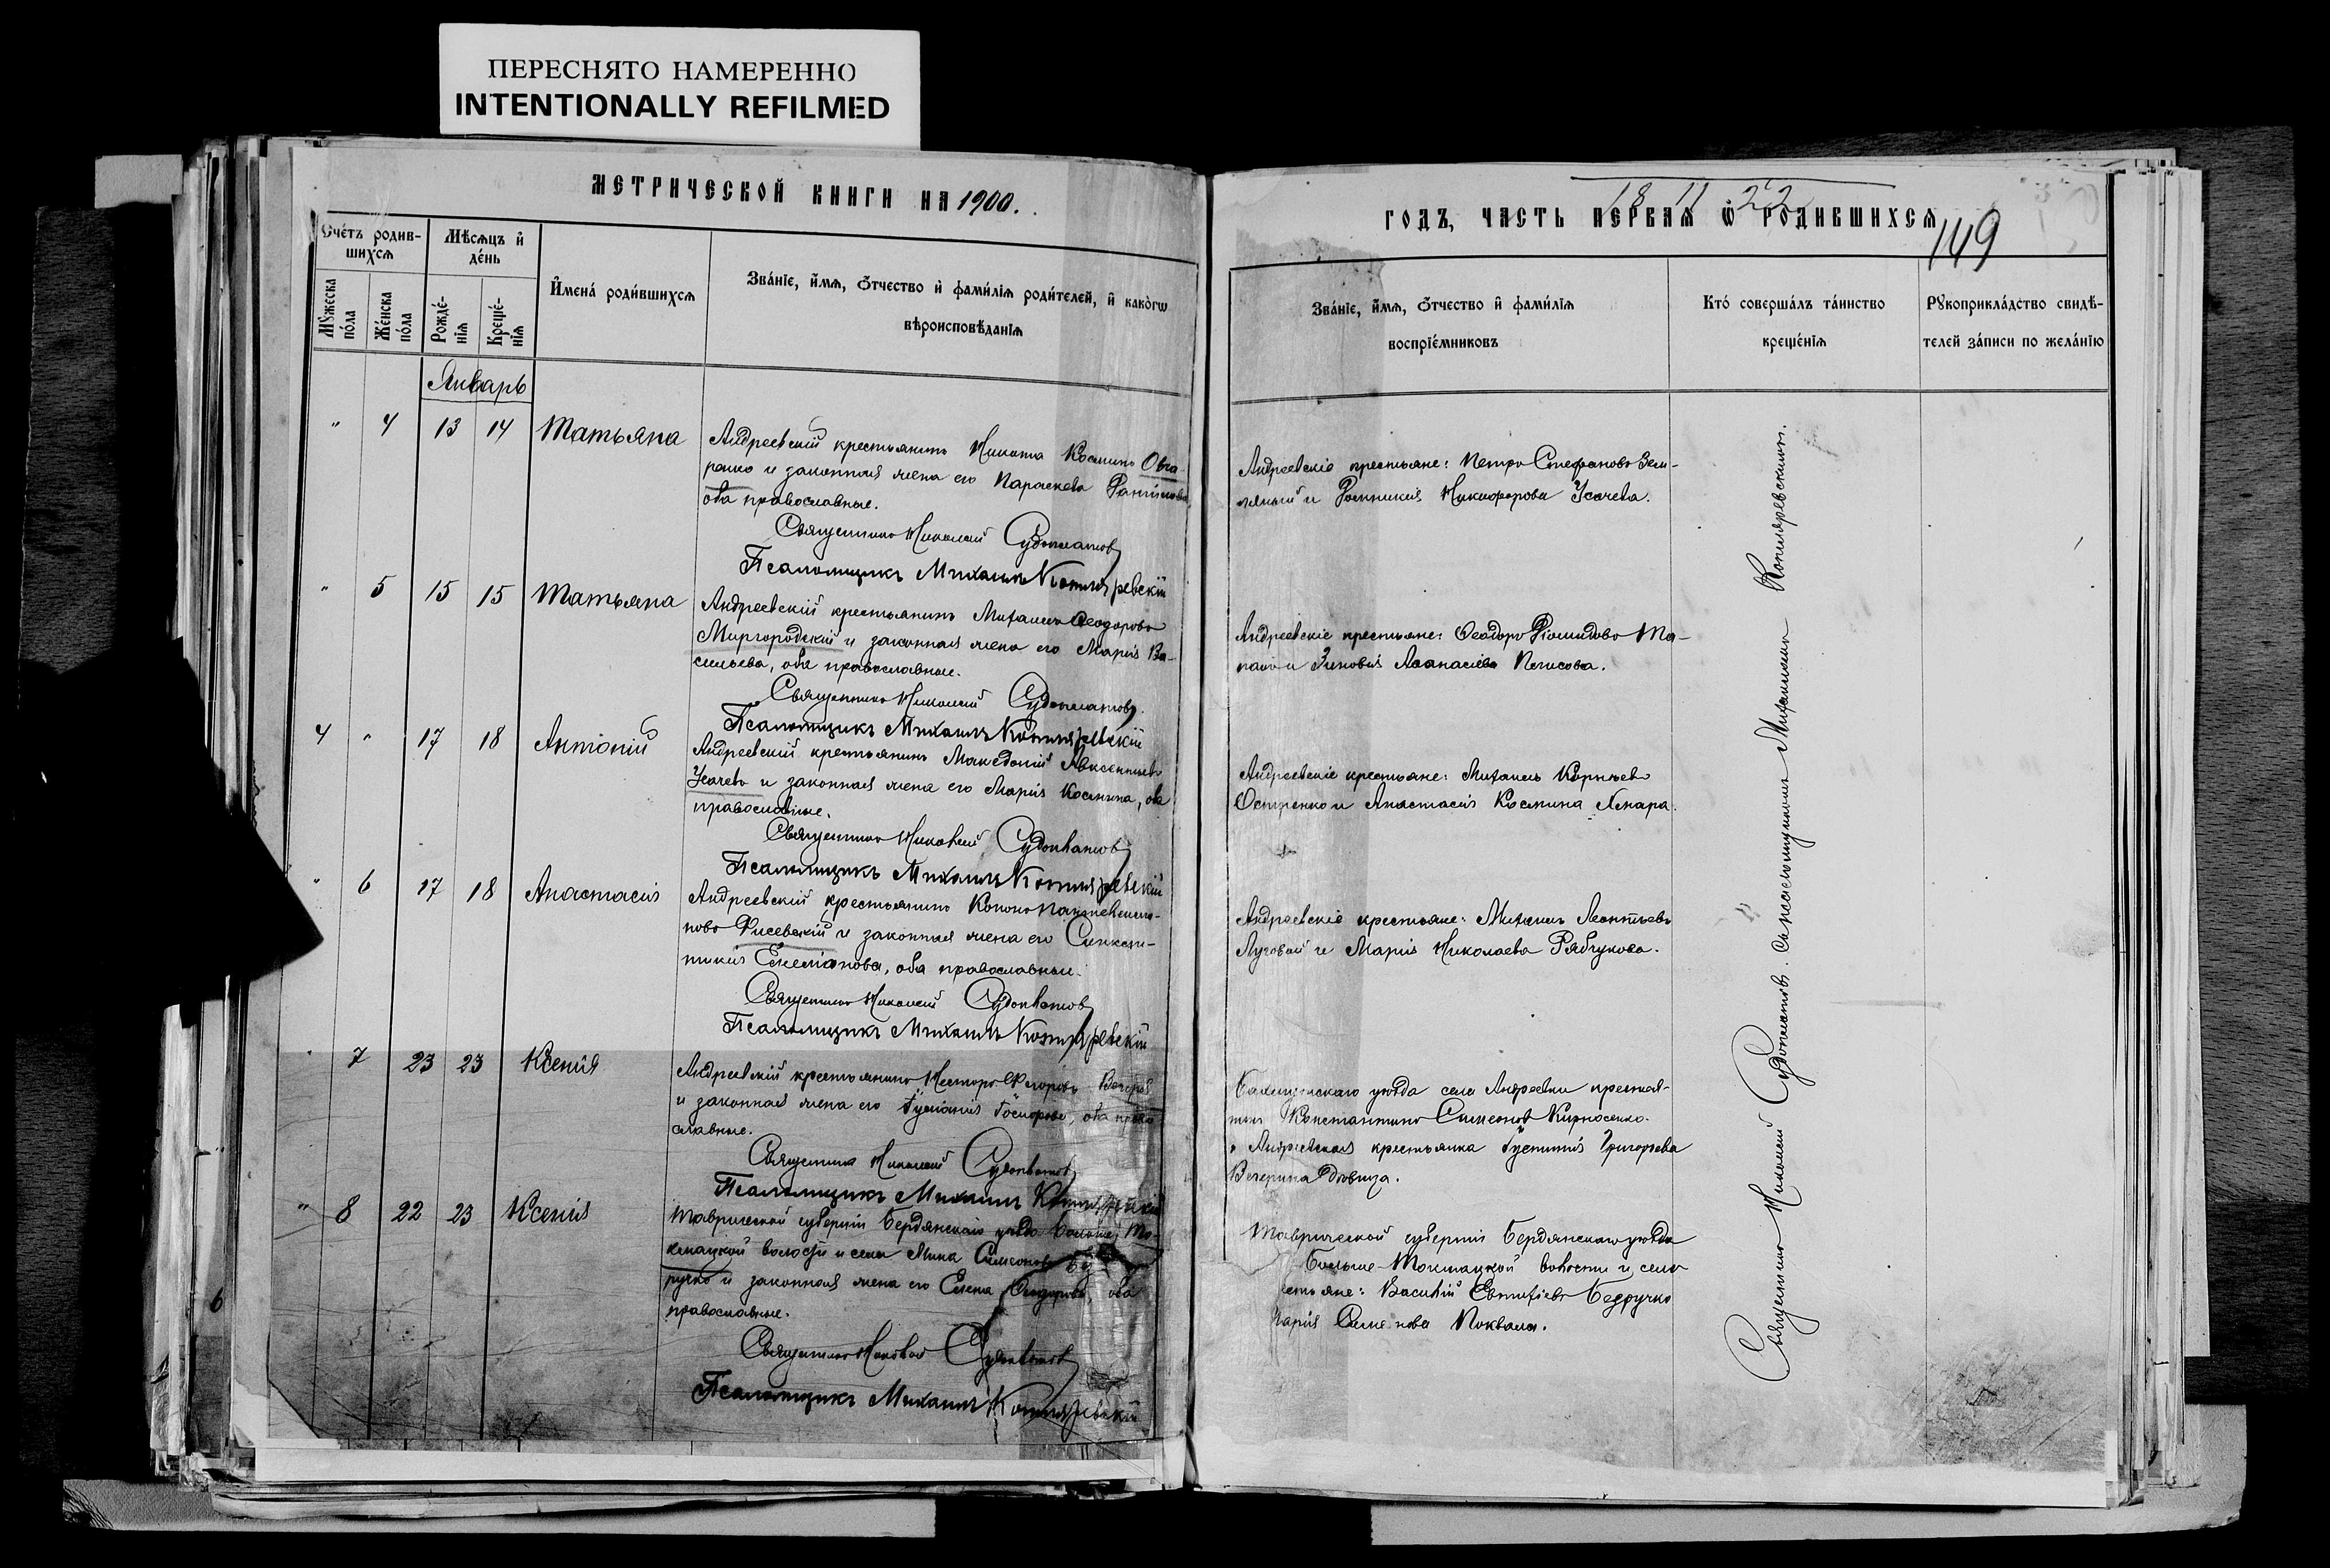 ПЕРЕСНЯТО НАМЕРЕННО
INTENTIONALLY REFILMED
МЕТРИЧЕСКОЙ КНИГИ НА 1900.
Счетъ родив-
шихся
Мѣсяцъ и
день
Мужеска
пола
Женска
пола
Рожде-
нія
Креще-
нія
Имена родившихся
Званіе, имя, отчество и фамилія родителей, и какогѡ
вѣроисповѣданія
Январь
" 4 13 14 Татьяна
Андреевскій крестьянинъ Никита Косминъ Овча-
ренко и законная жена его Параскева
оба православные.
Священникъ Николай Судоплатовъ
Псаломщикъ Михаилъ Котляревскій
" 5 15 15 Татьяна
Андреевскій крестьянинъ Михаилъ Ѳеодоровъ
Миргородскій и законная жена его Марія Ва-
сильева, оба православные.
Священникъ Николай Судоплатовъ.
Псаломщикъ Михаилъ Котляревскій
4 " 17 18 Антоній
Андреевскій крестьянинъ Македоній Авксентьевъ
Усачевъ и законная жена его Марія Космина, оба
православные.
Священникъ Николай Судоплатовъ
Псаломщикъ Михаилъ Котляревскій
" 6 17 18 Анастасія
Андреевскій крестьянинъ Кононъ Пантелеимо-
новъ и законная жена его Синкли-
тикія оба православные.
Священникъ Николай Судоплатовъ
Псаломщикъ Михаилъ Котляревскій
" 7 23 23 Ксенія
Андреевскій крестьянинъ Несторъ
и законная жена его оба право-
славные.
Священникъ Николай Судоплатовъ
Псаломщикъ Михаилъ Котляревскій
" 8 22 23 Ксенія
Таврической губерніи Бердянскаго уѣзда Больше-То-
кмацкой волости и села Мина Симеоновъ Бед-
ручко и законная жена его Елена оба
православные.
Священникъ Николай Судоплатовъ
Псаломщикъ Михаилъ Котляревскій
6
18 11 22
ГОДЪ, ЧАСТЬ ПЕРВАЯ Ѡ РОДИВШИХСЯ
149
Званіе, имя, отчество и фамилія
воспріемниковъ
Кто совершалъ таинство
крещенія
Рукоприкладство свидѣ-
телей записи по желанію
Андреевскіе крестьяне: Петръ Стефановъ Зем-
ляный и Никифорова Усачева.
Андреевскіе крестьяне: Ѳеодоръ Та-
и Зиновія Аѳанасіева
Андреевскіе крестьяне: Михаилъ Корнѣевъ
Остренко и Анастасія Космина
Андреевскіе крестьяне: Михаилъ Леонтьевъ
Луговой и Марія Николаева Рябчукова.
уѣзда села Андреевки крестья-
нинъ Константинъ Симеоновъ Кирносенко
и Андреевская крестьянка Григорьева
Вечерина вдовица.
Таврической губерніи Бердянскаго уѣзда
Больше-Токмацкой волости и села
крестьяне: Василій Евтихіевъ Бедручко
Марія Симеонова
Священникъ Николай Судоплатовъ съ псаломщикомъ Михаиломъ Котляревскимъ.